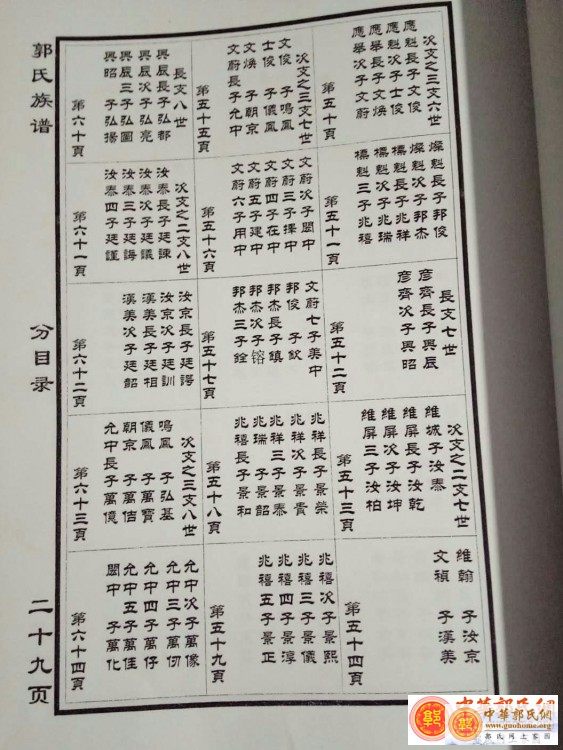 郭氏族谱
分目录
二十九页
次支之三支六世
應魁長子文俊
應魁次子士俊
應舉長子文煥
應舉次子文蔚
第五十頁
燦魁長子邦俊
燦魁次子邦杰
標魁長子兆祥
標魁次子兆瑞
標魁三子兆禧
第五十一頁
長支七世
彦齊長子興辰
彦齊次子興昭
第五十二頁
次支之二支七世
維城子汝泰
維屏長子汝乾
維屏次子汝坤
維屏三子汝柏
第五十三頁
維翰 子汝京
文禎 子漢美
第五十四頁
次支之三支七世
文俊 子鳴鳳
士俊 子儀鳳
文煥 子朝京
文蔚長子允中
第五十五頁
文蔚次子閎中
文蔚三子擇中
文蔚四子在中
文蔚五子建中
文蔚六子用中
第五十六頁
文蔚七子美中
邦俊 子欽
邦杰長子鎮
邦杰次子镕
邦杰三子銓
第五十七頁
兆祥長子景榮
兆祥次子景貴
兆祥三子景泰
兆瑞 子景韶
兆禧長子景和
第五十八頁
兆禧次子景熙
兆禧三子景儀
兆禧四子景淳
兆禧五子景正
第五十九頁
長支八世
興辰長子弘都
興辰次子弘亮
興辰三子弘圖
興昭 子弘揚
第六十頁
次支之二支八世
汝泰長子廷諫
汝泰次子廷議
汝泰三子廷誨
汝泰四子廷謹
第六十一頁
汝京長子廷諤
汝京次子廷訓
漢美長子廷相
漢美次子廷韶
第六十二頁
次支之三支八世
鳴鳳 子弘基
儀鳳 子萬寶
朝京 子萬佶
允中長子萬億
第六十三頁
允中次子萬像
允中三子萬仞
允中四子萬仔
允中五子萬佳
閎中 子萬化
第六十四頁
中華郭氏網
www.guohome.org
郭氏网上家园